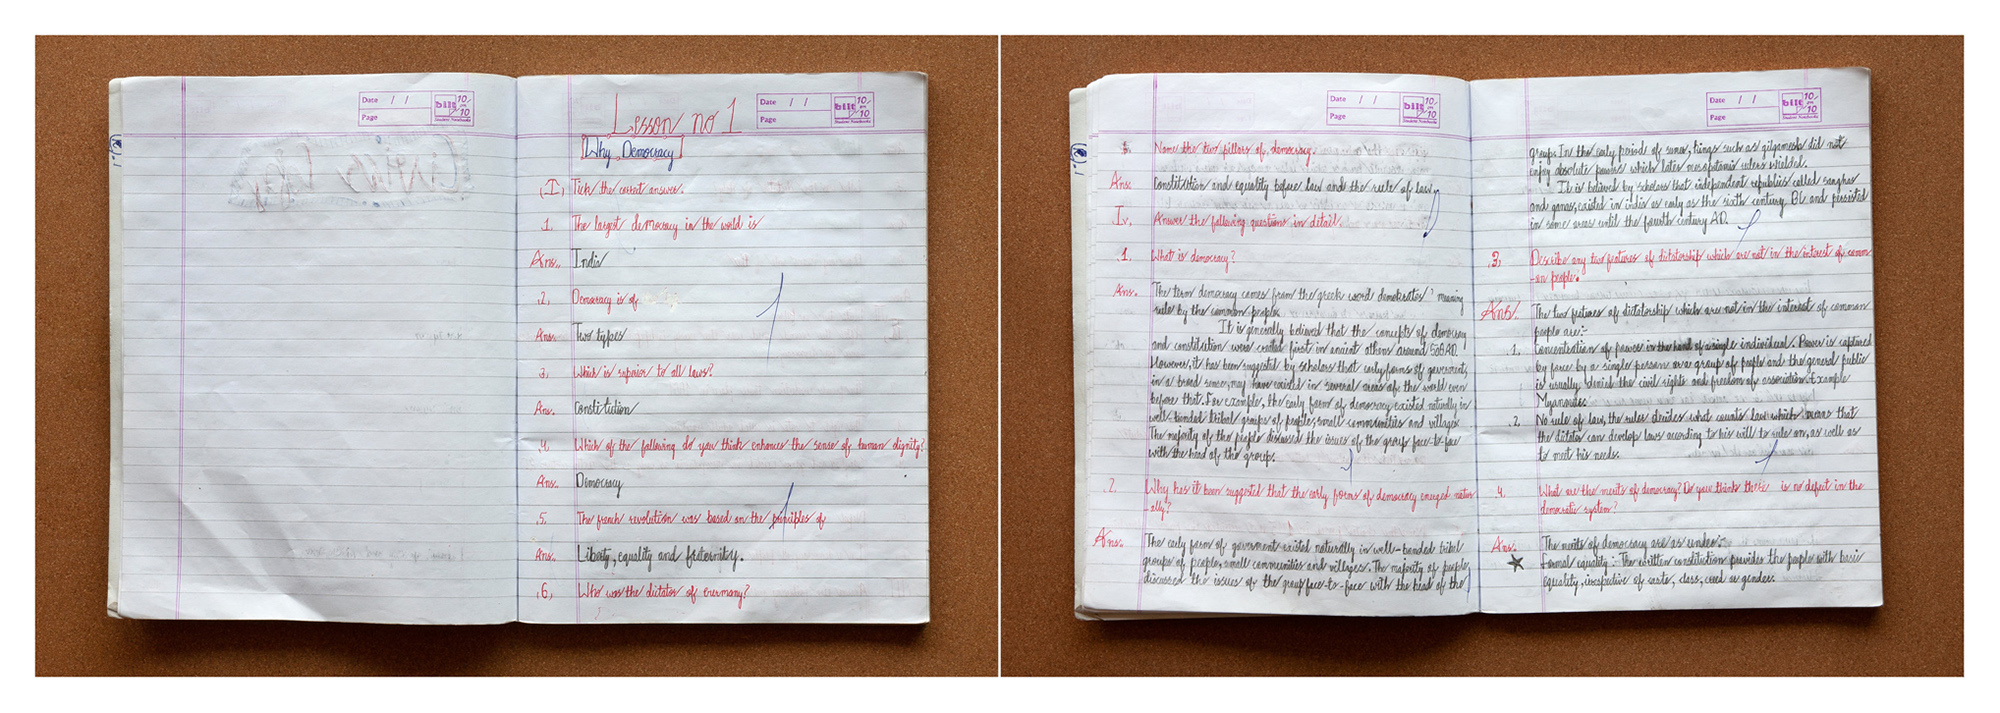 Date / /
Page
bilt
10
on
10
Student Notebooks
Lesson no 1
Why Democracy
Date / /
Page
bilt
10
on
10
Student Notebooks
(I) Tick the correct answer.
1. The largest democracy in the world is
Ans. India
2. Democracy is of
Ans. Two types
3. Which is superior to all laws?
Ans. Constitution
4. Which of the following do you think enhances the sense of human dignity?
Ans. Democracy
5. The french revolution was based on the principles of
Ans. Liberty, equality and fraternity.
6. Who was the dictator of Germany?
Date / /
Page
bilt
10
on
10
Student Notebooks
Name the two pillars of democracy.
Ans. Constitution and equality before law and the rule of law
Iv. Answer the following questions in detail.
1. What is democracy?
Ans. The term democracy comes from the greek word meaning
rule by the common people.
It is generally believed that the concepts of democracy
and constitution were created first in ancient athens around 508AD.
However, it has been suggested by scholars that early forms of goverment,
in a broad sense, may have existed in several areas of the world even
before that. For example, the early form of democracy existed naturally in
well-bonded tribal groups of people, small communities and villages
The majority of the people discussed the issues of the group face-to-face
with the head of the group.
2. Why has it been suggested that the early forms of democracy emerged natur
-ally?
Ans. The early form of goverment existed naturally in well-bonded tribel
groups of people, small communities and villages. The majority of people
discussed the issues of the group face-to-face with the head of the
Date / /
Page
bilt
10
on
10
Student Notebooks
group. In the early period of sumer, kings such as gilgamesh did not
enjoy absolute powers which later mesopotamia rulers wielded.
It is believed by scholars that independent republics called sanghas
and ganas, existed in india as early as the sixth century BC and persisted
in some areas until the fourth century AD.
3. Describe any two features of dictatorship which are not in the interest of comm
-on people.
Ans. The two features of dictatorship which are not in the interest of common
people are:-
1. Concentration of power in the hand of a single individual. Power is captured
by force by a single person or a group of people and the general public
is usually denied the civil rights and freedom of association. Example
2. No rule of law, the ruler decides what counts law which means that
the dictator can develop laws according to his will to rule on, as well as
to meet his needs.
4. What are the merits of democracy? Do you think there is no defect in the
democratic system?
Ans. The merits of democracy are as under:-
Formal equality: The written constitution provides the people with basic
equality, irrespective of caste, class, creed or gender.